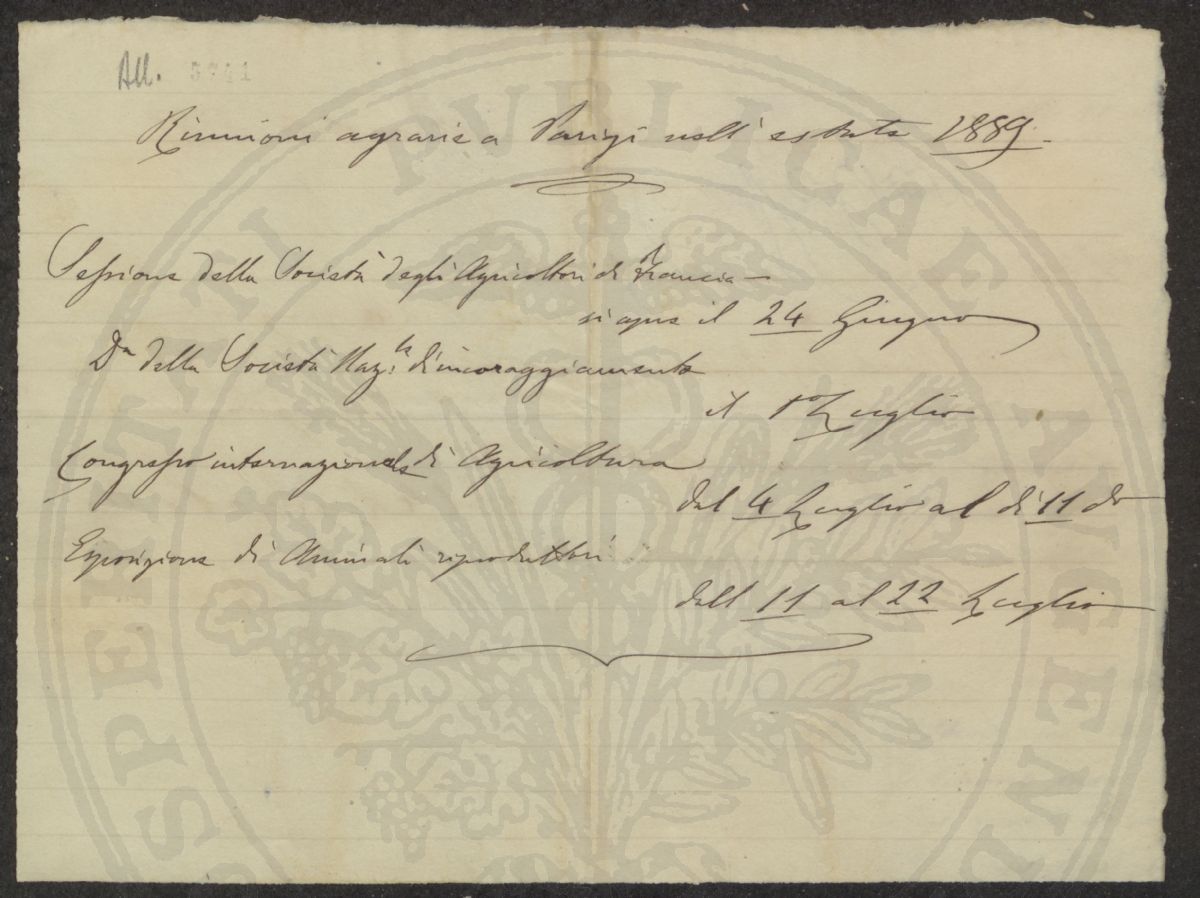 All. 5741
Riunioni agrarie a Parigi nell'estate 1889.
Sessione della Società degli Agricoltori di Francia —
si apre il 24 Giugno
Do della Società Naz.le d'incoraggiamento
il 1o Luglio
Congresso internazionale di Agricoltura
dal 4 Luglio al dì 11 do
Esposizione di Animali riproduttori
dall'11 al 22 Luglio
PROSPERITATI PUBLICAE AUGENDAE